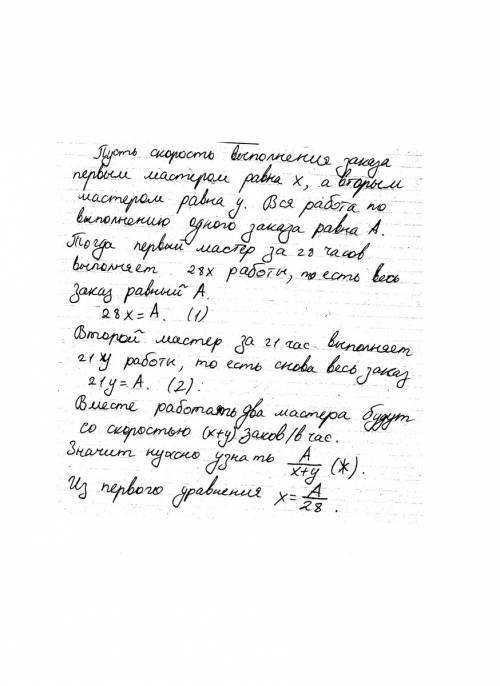 Пусть скорость выполнения заказа
первым мастером равна x, а вторым
мастером равна y. Вся работа по
выполнению одного заказа равна A.
Тогда первый мастер за 28 часов
выполняет 28x работы, то есть весь
заказ равный A.
28x = A. (1)
Второй мастер за 21 час выполняет
21 y работы, то есть снова весь заказ
21y = A. (2).
Вместе работать два мастера будут
со скоростью (x+y) заков/в час.
Значит нужно узнать A/(x+y) (*).
Из первого уравнения x = A/28.